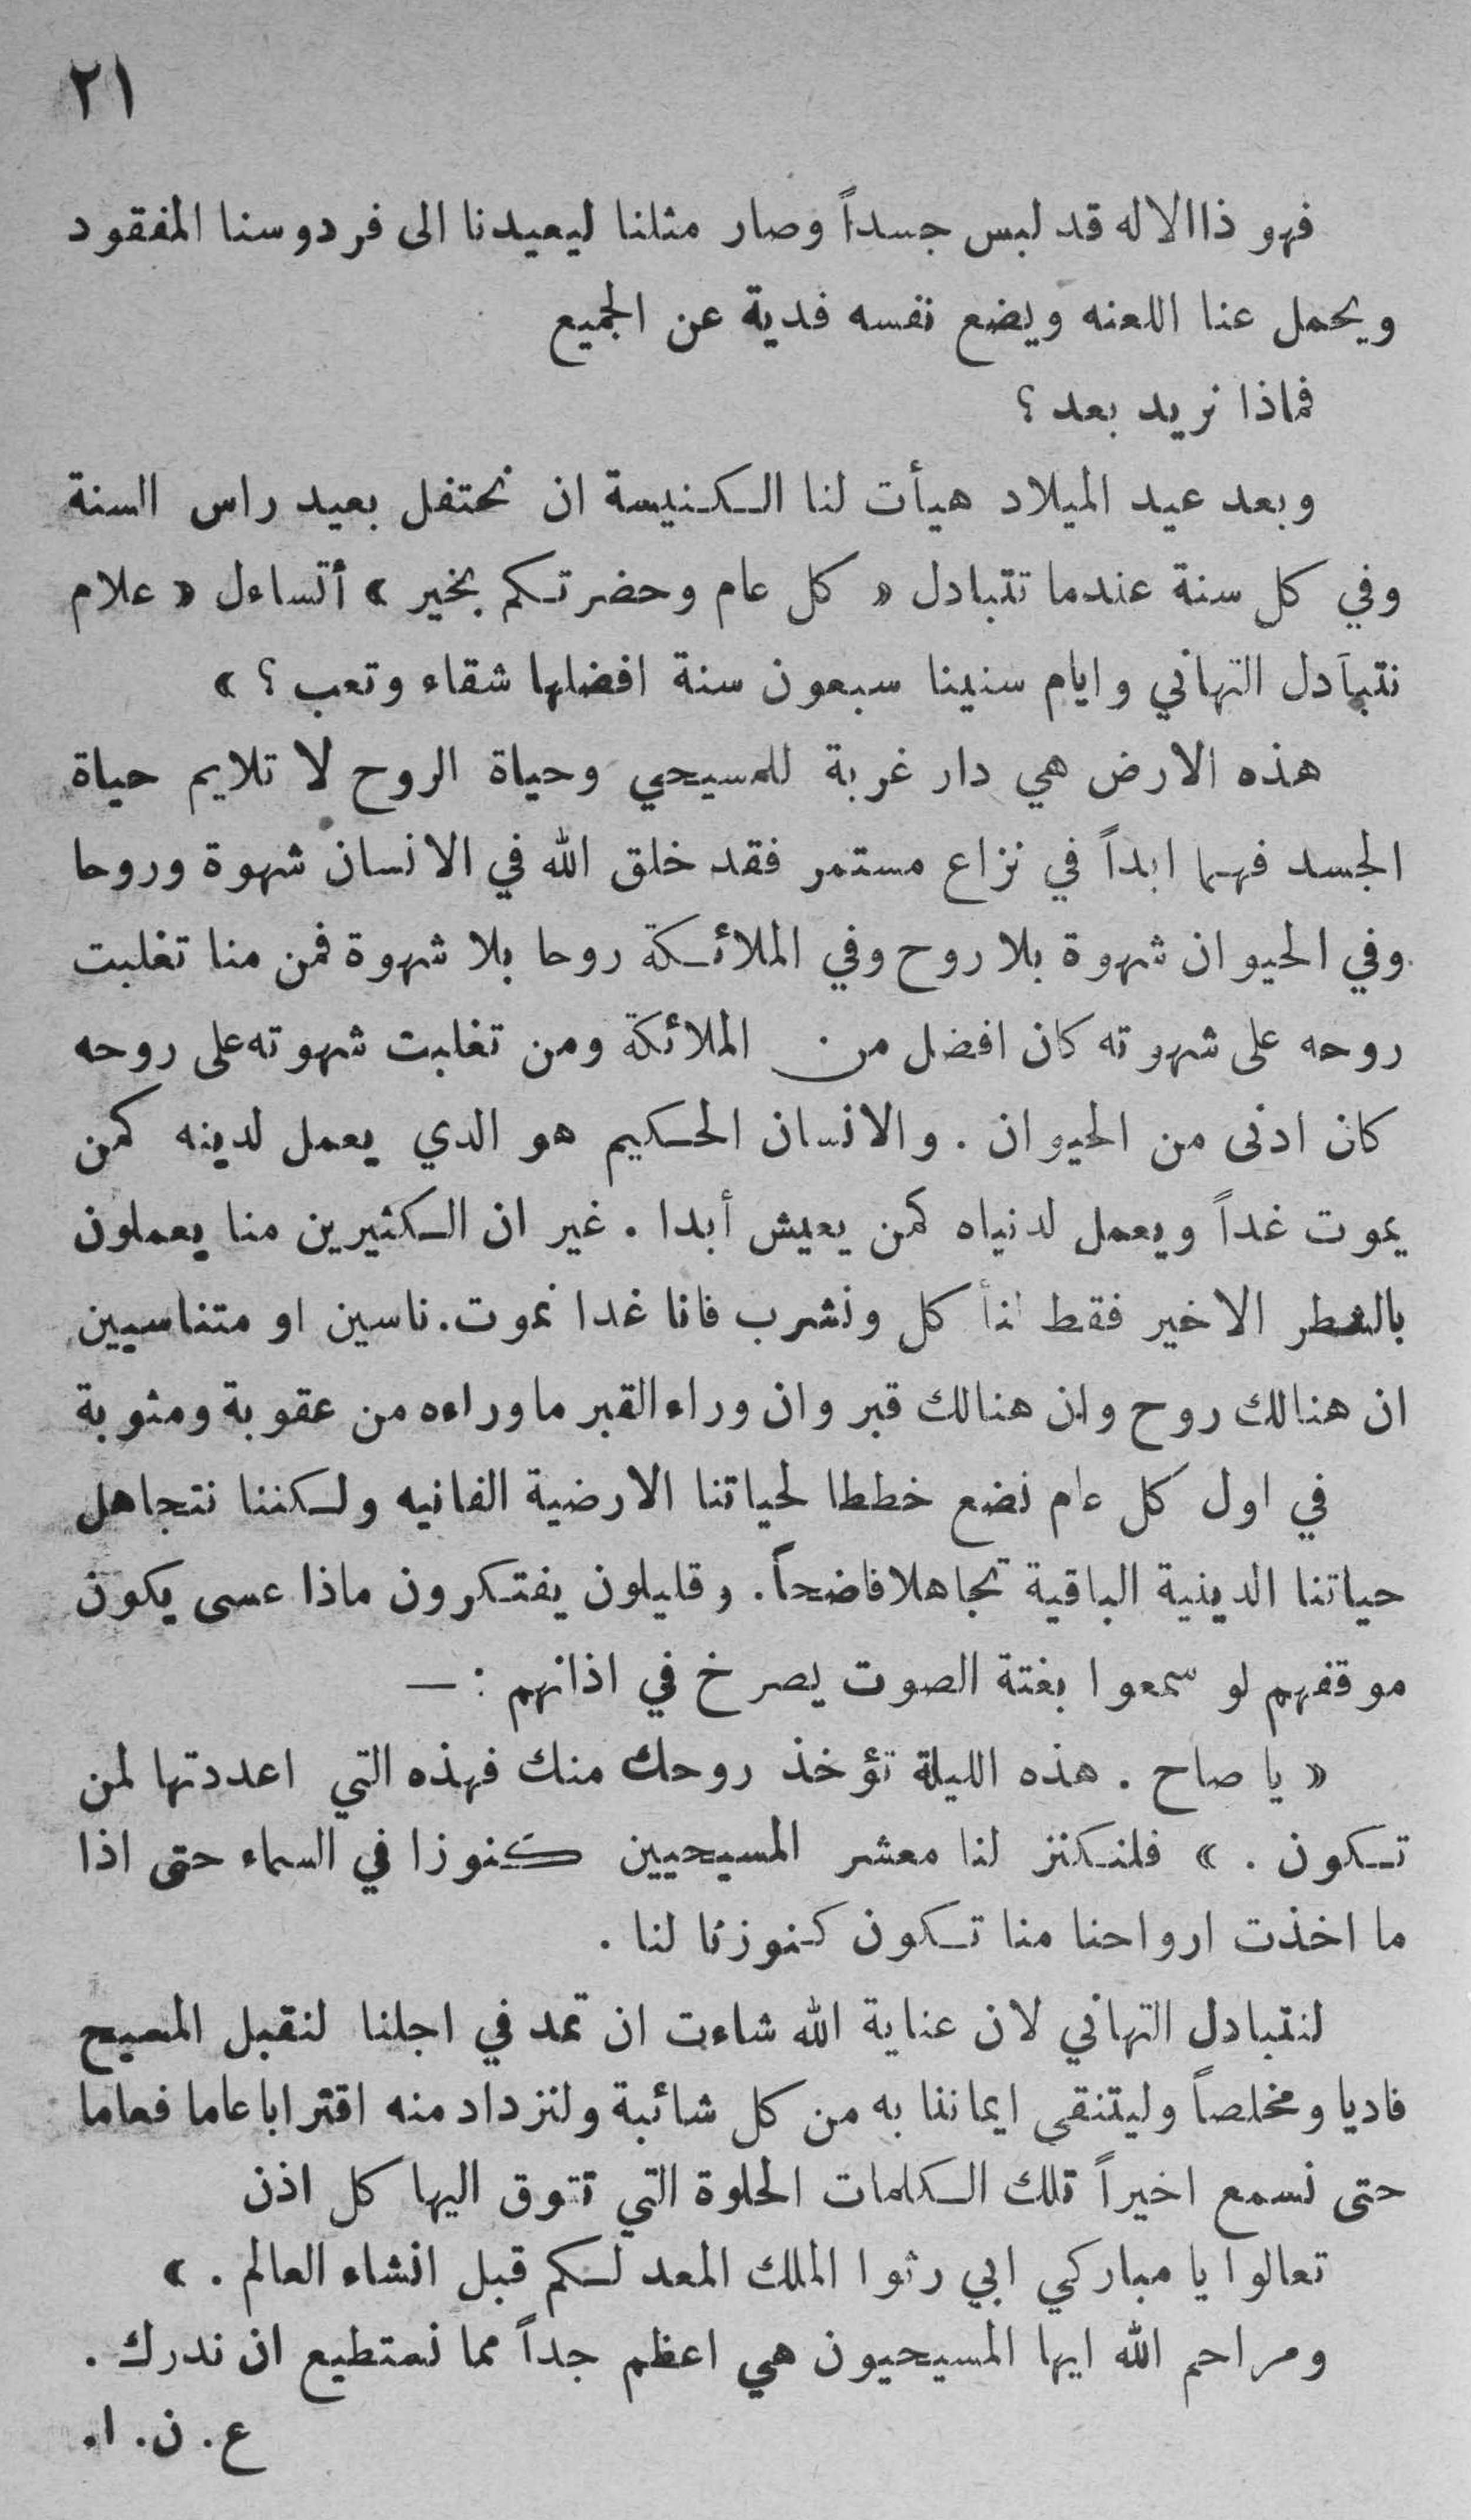 ٢١
فهو ذا الاله قد لبس جسداً وصار مثلنا ليعيدنا الى فردوسنا المفقود
ويحمل عنا اللعنه ويضع نفسه فدية عن الجميع
فماذا نريد بعد ؟
وبعد عيد الميلاد هيأت لنا الكنيسة ان نحتفل بعيد راس السنة
وفي كل سنة عندما نتبادل « كل عام وحضرتكم بخير » أتساءل « علام
نتبادل التهاني وايام سنينا سبعون سنة افضلها شقاء وتعب ؟ »
هذه الارض هي دار غربة للمسيحي وحياة الروح لا تلايم حياة
الجسد فهما ابداً في نزاع مستمر فقد خلق الله في الانسان شهوة وروحا
وفي الحيوان شهوة بلا روح وفي الملائكة روحا بلا شهوة فمن منا تغلبت
روحه على شهوته كان افضل من الملائكة ومن تغلبت شهوته على روحه
كان ادنى من الحيوان . والانسان الحكيم هو الدي يعمل لدينه كمن
يموت غداً ويعمل لدنياه كمن يعيش أبدا . غير ان الكثيرين منا يعملون
بالشطر الاخير فقط لنأكل ونشرب فانا غدا نموت. ناسين او متناسيين
ان هنالك روح وان هنالك قبر وان وراء القبر ماوراءه من عقوبة ومثوبة
في اول كل عام نضع خططا لحياتنا الارضية الفانيه ولكننا نتجاهل
حياتنا الدينية الباقية تجاهلا فاضحاً. وقليلون يفتكرون ماذا عسى يكون
موقفهم لو سمعوا بغتة الصوت يصرخ في اذانهم : —
« يا صاح . هذه الليلة تؤخذ روحك منك فهذه التي اعددتها لمن
تكون . » فلنكنز لنا معشر المسيحيين كنوزا في السماء حتى اذا
ما اخذت ارواحنا منا تكون كنوزنا لنا .
لنتبادل التهاني لان عناية الله شاءت ان تمد في اجلنا لنقبل المسيح
فاديا ومخلصاً وليتنقى ايماننا به من كل شائبة ولنزداد منه اقترابا عاما فعاما
حتى نسمع اخيراً تلك الكلمات الحلوة التي تتوق اليها كل اذن
تعالوا يا مباركي ابي رثوا الملك المعد لكم قبل انشاء العالم . »
ومراحم الله ايها المسيحيون هي اعظم جداً مما نستطيع ان ندرك .
ع. ن. ا.